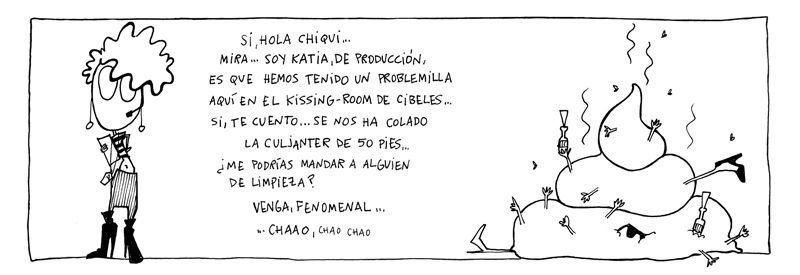 SÍ, HOLA CHIQUI...
MIRA... SOY KATIA, DE PRODUCCIÓN,
ES QUE HEMOS TENIDO UN PROBLEMILLA
AQUÍ EN EL KISSING-ROOM DE CIBELES...
SI, TE CUENTO... SE NOS HA COLADO
LA CULJANTER DE 50 PIES...
¿ME PODRÍAS MANDAR A ALGUIEN
DE LIMPIEZA?
VENGA, FENOMENAL...
... CHAAO, CHAO CHAO